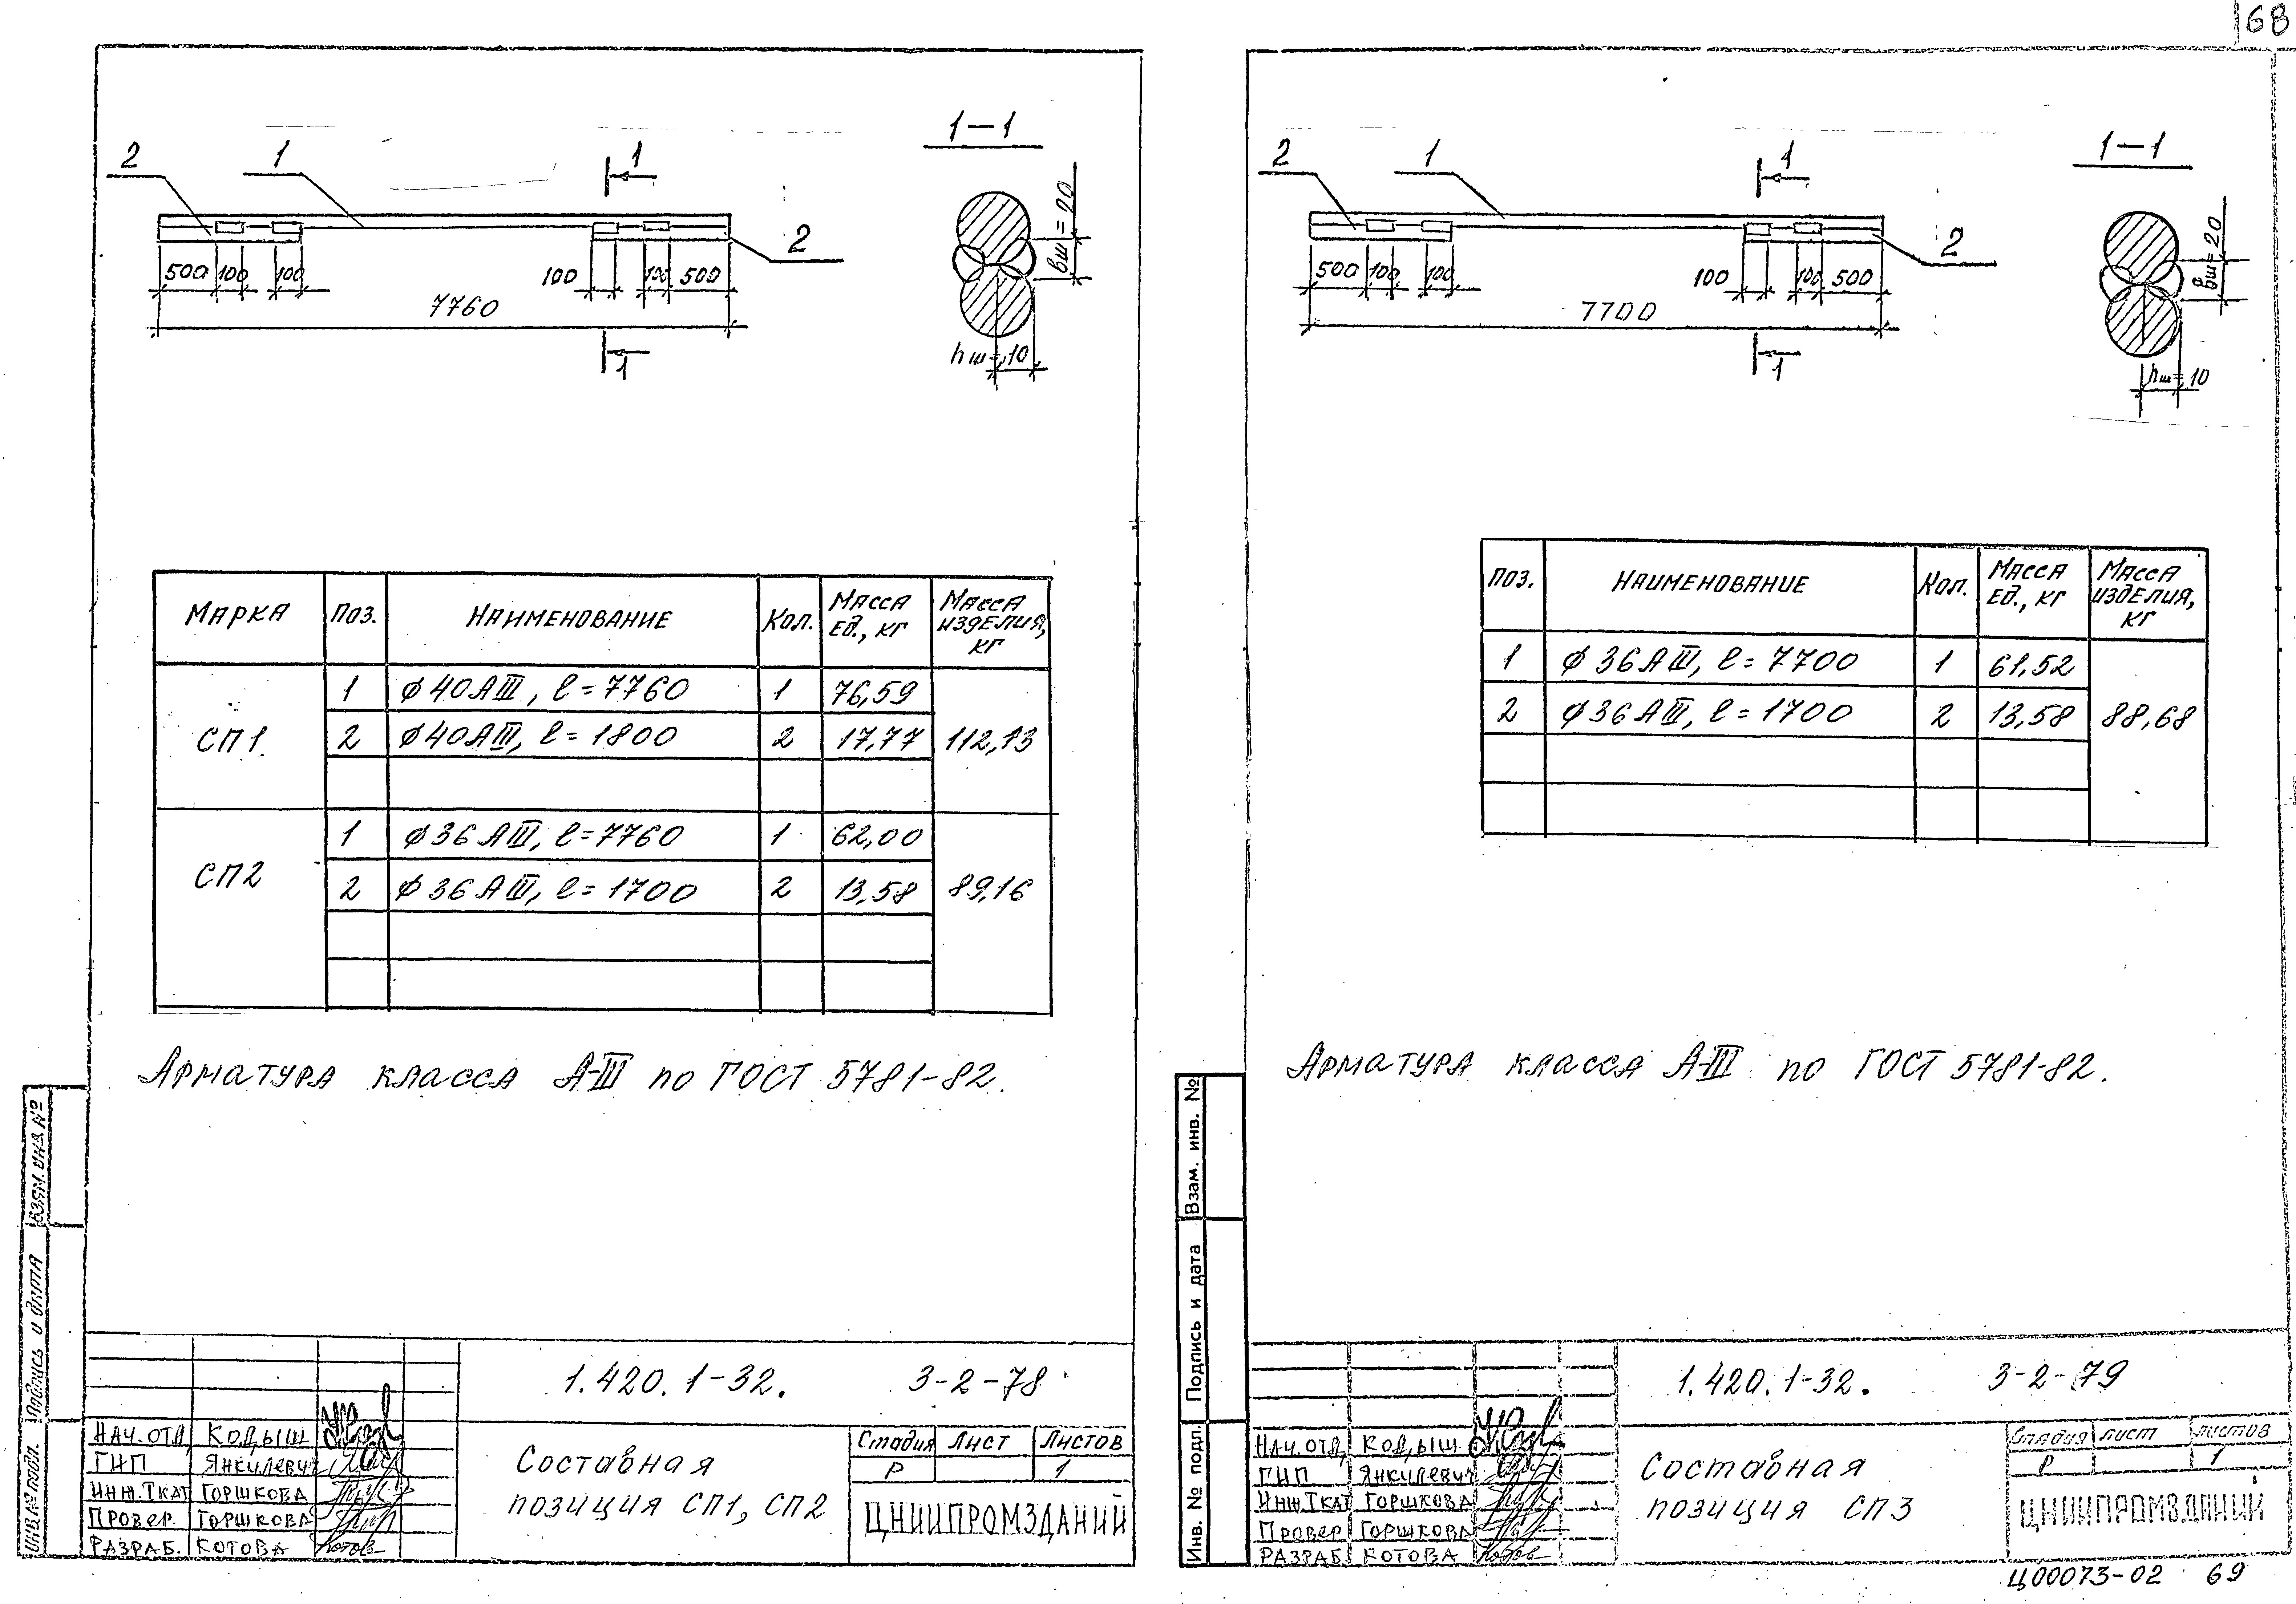 68
1-1
2
1
1
2
вш=20
500 100 100 100 100 500
7760
hш=10
1
МАРКА ПОЗ. НАИМЕНОВАНИЕ КОЛ. МАССА ЕД., КГ МАССА ИЗДЕЛИЯ, КГ
СП1 1 ϕ40AIII, ℓ=7760 1 76,59
2 ϕ40AIII, ℓ=1800 2 17,77 112,13
СП2 1 ϕ36AIII, ℓ=7760 1 62,00
2 ϕ36AIII, ℓ=1700 2 13,58 89,16
АРМАТУРА КЛАССА А-III ПО ГОСТ 5781-82.
ВЗЯМ. ИНВ. №
Подпись и дата
ИНВ. № подл.
1.420.1-32. 3-2-78
НАЧ. ОТД. КОДЫШ
ГИП ЯНКИЛЕВИЧ
ИНЖ. ТКАТ ГОРШКОВА
ПРОВЕР. ГОРШКОВА
РАЗРАБ. КОТОВА
Составная
позиция СП1, СП2
Стадия Лист Листов
Р 1
ЦНИИПРОМЗДАНИЙ
1-1
2
1
1
2
вш=20
500 100 100 100 100 500
7700
hш=10
1
ПОЗ. НАИМЕНОВАНИЕ КОЛ. МАССА ЕД., КГ МАССА ИЗДЕЛИЯ, КГ
1 ϕ36AIII, ℓ=7700 1 61,52
2 ϕ36AIII, ℓ=1700 2 13,58 88,68
АРМАТУРА КЛАССА А-III ПО ГОСТ 5781-82.
Взам. инв. №
Подпись и дата
Инв. № подл.
1.420.1-32. 3-2-79
НАЧ. ОТД. КОДЫШ
ГИП ЯНКИЛЕВИЧ
ИНЖ. ТКАТ ГОРШКОВА
ПРОВЕР ГОРШКОВА
РАЗРАБ. КОТОВА
Составная
позиция СП3
Стадия Лист Листов
Р 1
ЦНИИПРОМЗДАНИЙ
Ц00073-02 69